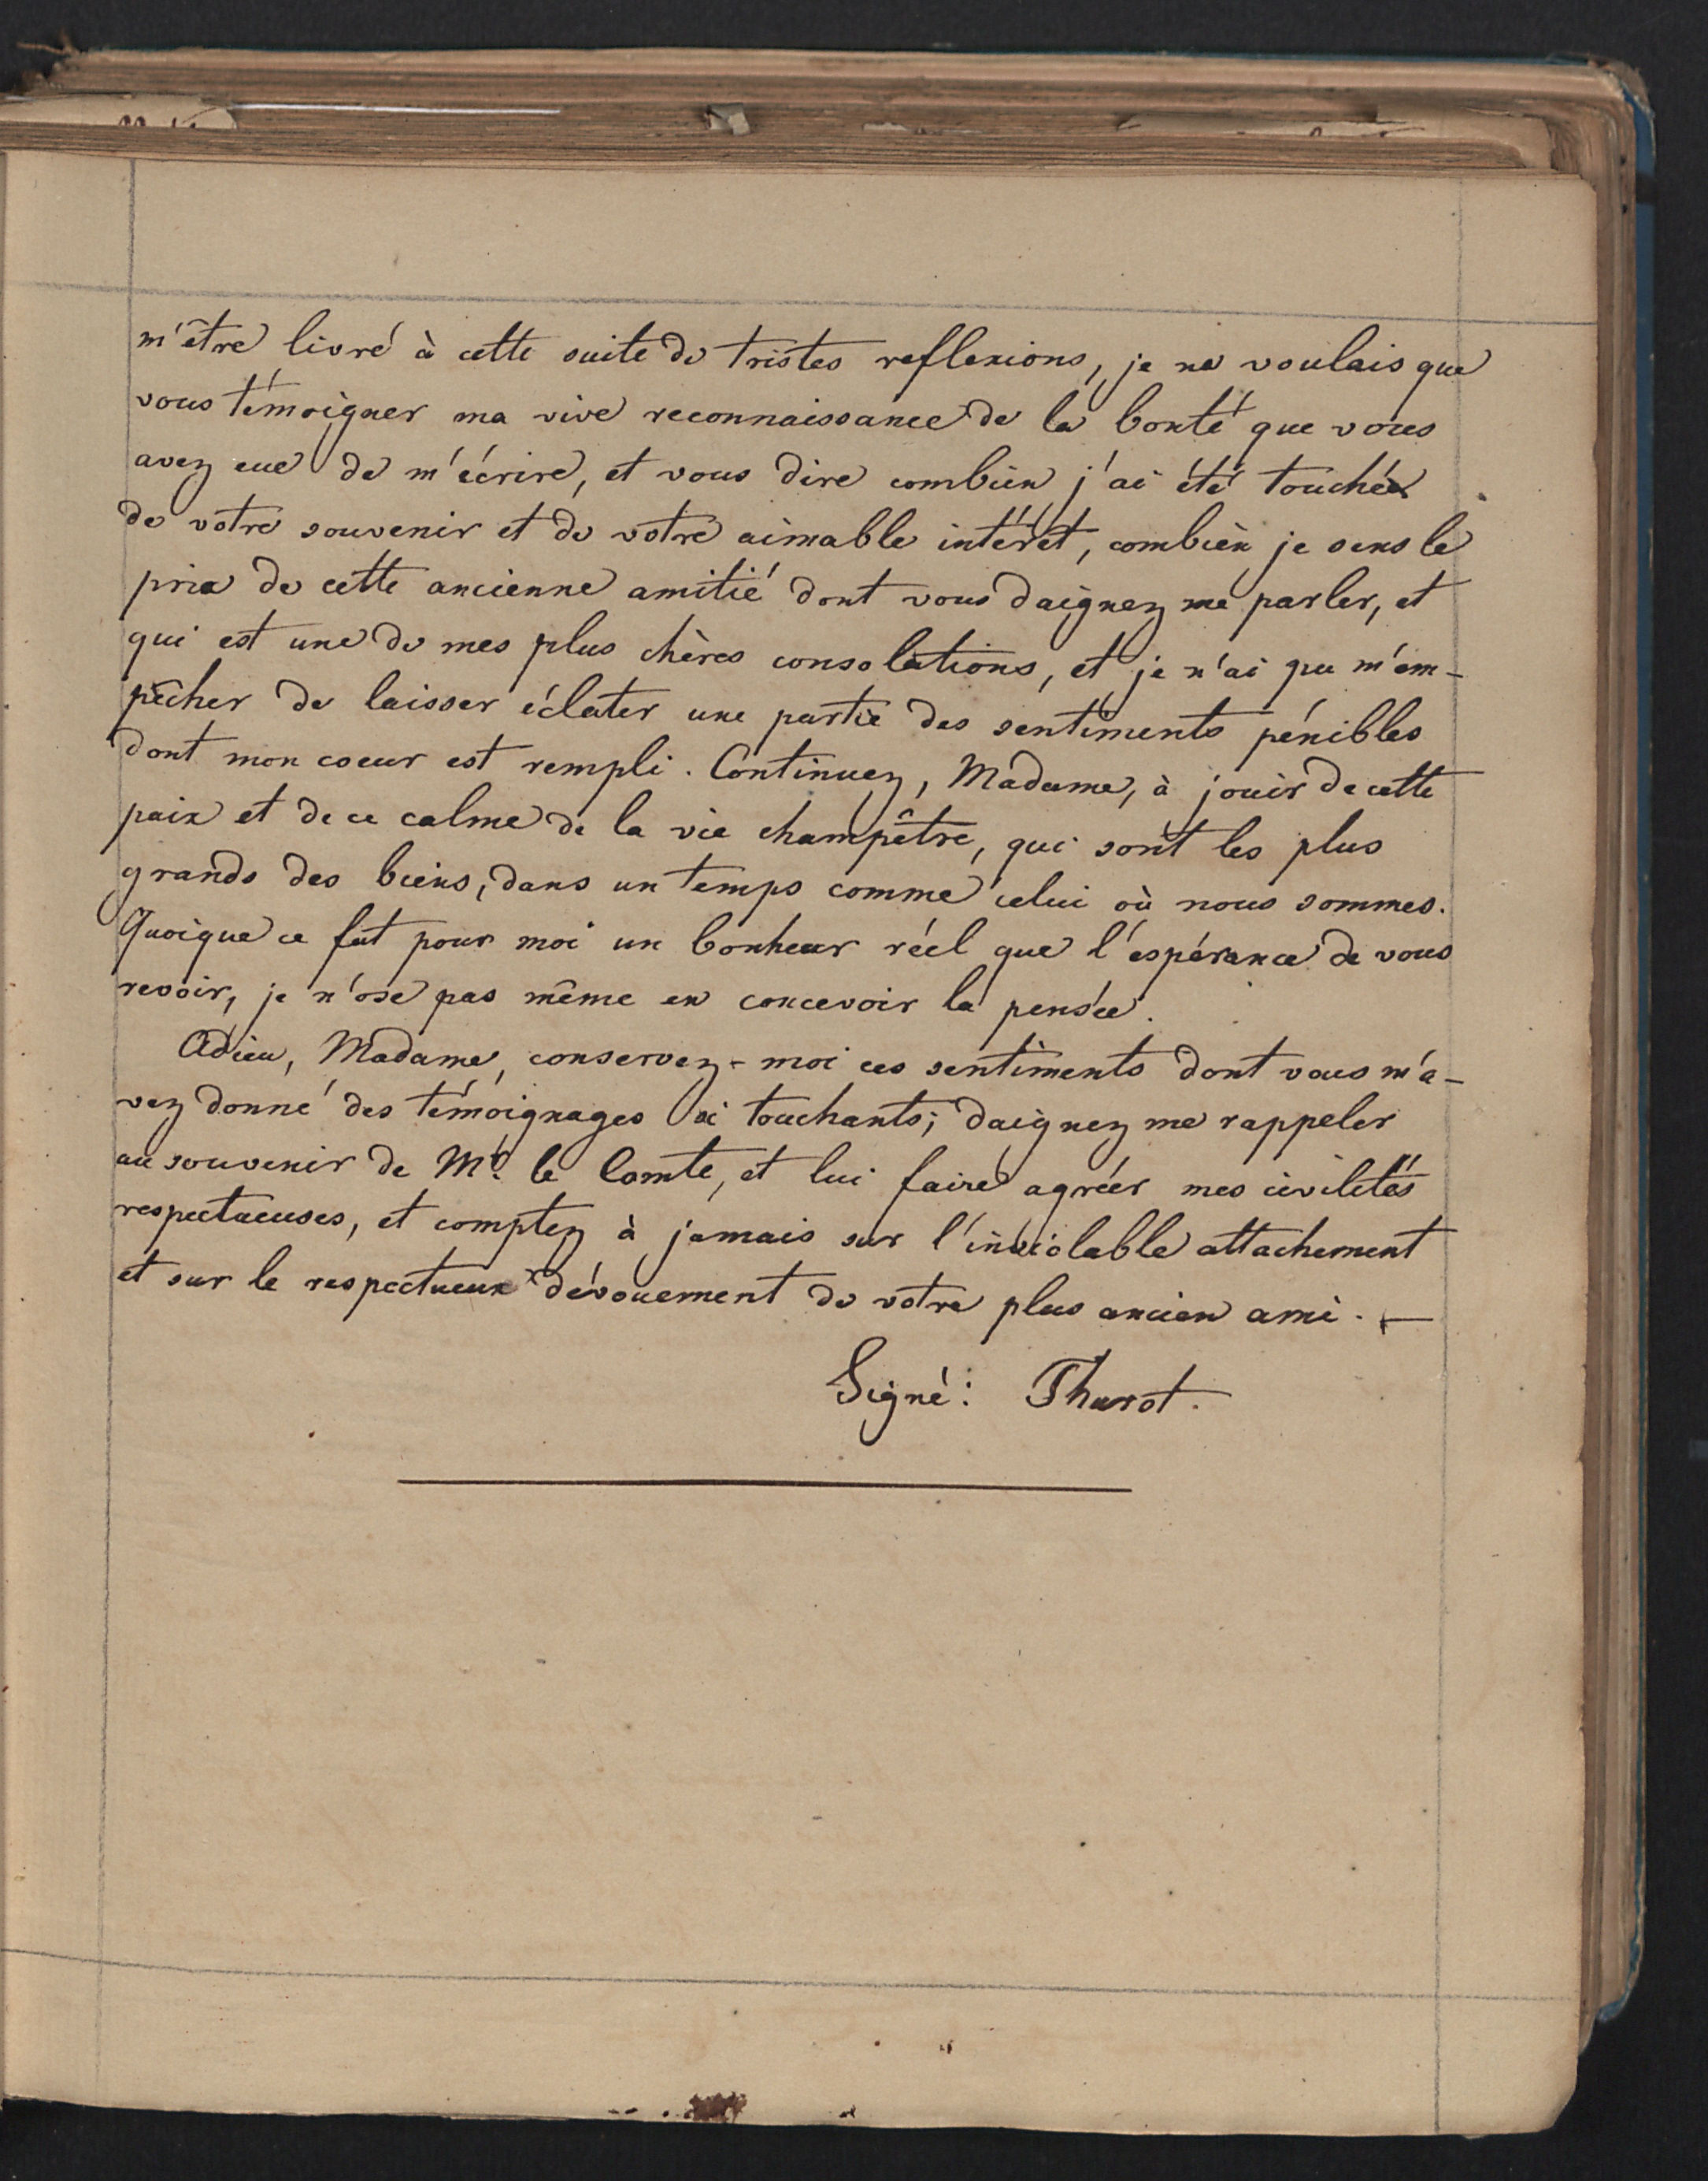 m'être livré à cette suite de tristes reflexions, je ne voulais que
vous témoigner ma vive reconnaissance de la bonté que vous
avez eue de m'écrire, et vous dire combien j'ai été touché
de votre souvenir et de votre aimable intérêt, combien je sens le
prix de cette ancienne amitié dont vous daignez me parler, et
qui est une de mes plus chères consolations, et je n'ai pu m'em-
pêcher de laisser éclater une partie des sentiments pénibles
dont mon coeur est rempli. Continuez, Madame, à jouir de cette
paix et de ce calme de la vie champêtre, qui sont les plus
grands des biens, dans un temps comme celui où nous sommes.
Quoique ce fut pour moi un bonheur réel que l'espérance de vous
revoir, je n'ose pas même en concevoir la pensée.
Adieu, Madame, conservez-moi ces sentiments dont vous m'a-
vez donné des témoignages si touchants; daignez me rappeler
au souvenir de Mr. le Comte, et lui faire agréer mes civilités
respectueuses, et comptez à jamais sur l'inviolable attachement
et sur le respectueux dévouement de votre plus ancien ami. —
Signé: Thurot.